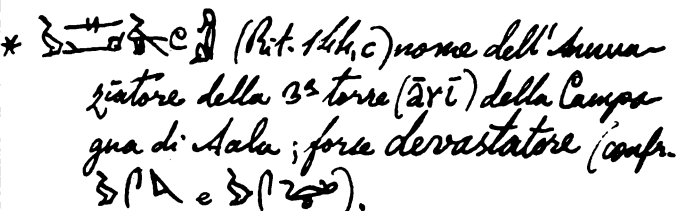 * (Rit. 144, c) nome dell'Annun-
ziatore della 3ª torre (ārī) della Campa-
gna di Aalu; forse devastatore (confr.
e ).